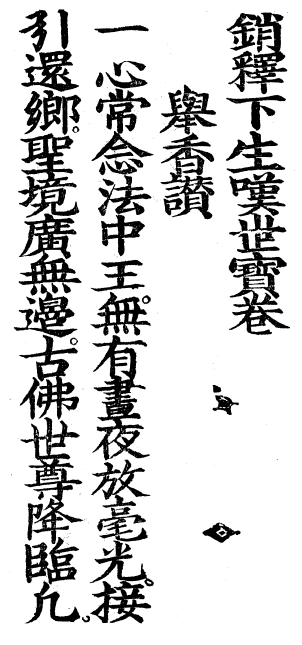 銷釋下生嘆世寳卷
舉香讃
一心常念法中王。無有晝夜放毫光。接
引還鄉。聖境廣無邊。古佛世尊降臨凡。